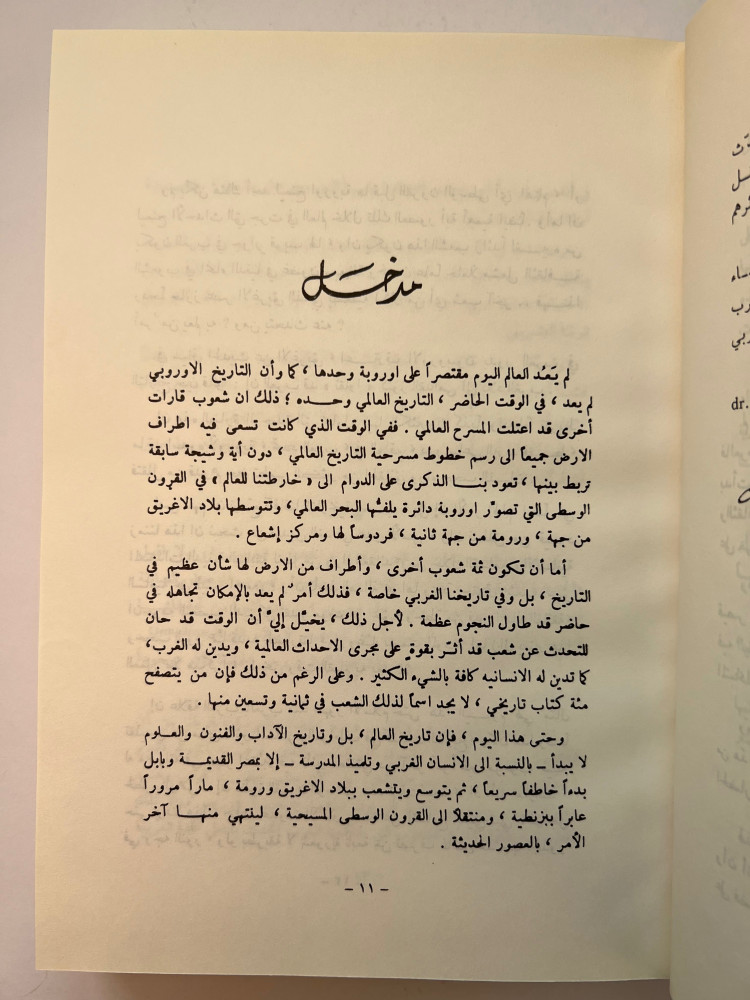 مدخل
لم يَعُد العالم اليوم مقتصراً على اوروبة وحدها ، كما وأن التاريخ الاوروبي
لم يعد ، في الوقت الحاضر ، التاريخ العالمي وحده ؛ ذلك ان شعوب قارات
أخرى قد اعتلت المسرح العالمي . ففي الوقت الذي كانت تسعى فيه اطراف
الارض جميعاً الى رسم خطوط مسرحية التاريخ العالمي ، دون أية وشيجة سابقة
تربط بينها ، تعود بنا الذكرى على الدوام الى « خارطتنا للعالم » في القرون
الوسطى التي تصوّر اوروبة دائرة يلفّها البحر العالمي ، وتتوسطها بلاد الاغريق
من جهة ، ورومة من جهة ثانية ، فردوساً لها ومركز إشعاع .
أما أن تكون ثمة شعوب أخرى ، وأطراف من الارض لها شأن عظيم في
التاريخ ، بل وفي تاريخنا الغربي خاصة ، فذلك أمرٌ لم يعد بالإمكان تجاهله في
حاضر قد طاول النجوم عظمة . لأجل ذلك ، يخيّل إليّ أن الوقت قد حان
للتحدث عن شعب قد أثّر بقوةٍ على مجرى الاحداث العالمية ، ويدين له الغرب،
كما تدين له الانسانيه كافة بالشيء الكثير . وعلى الرغم من ذلك فإن من يتصفح
مئة كتاب تاريخي ، لا يجد اسماً لذلك الشعب في ثمانية وتسعين منها .
وحتى هذا اليوم ، فإن تاريخ العالم ، بل وتاريخ الآداب والفنون والعلوم
لا يبدأ – بالنسبة الى الانسان الغربي وتلميذ المدرسة – إلا بمصر القديمة وبابل
بدءاً خاطفاً سريعاً ، ثم يتوسع ويتشعب ببلاد الاغريق ورومة ، ماراً مروراً
عابراً ببزنطية ، ومنتقلاً الى القرون الوسطى المسيحية ، لينتهي منها آخر
الأمر ، بالعصور الحديثة .
– ١١ –
dr.